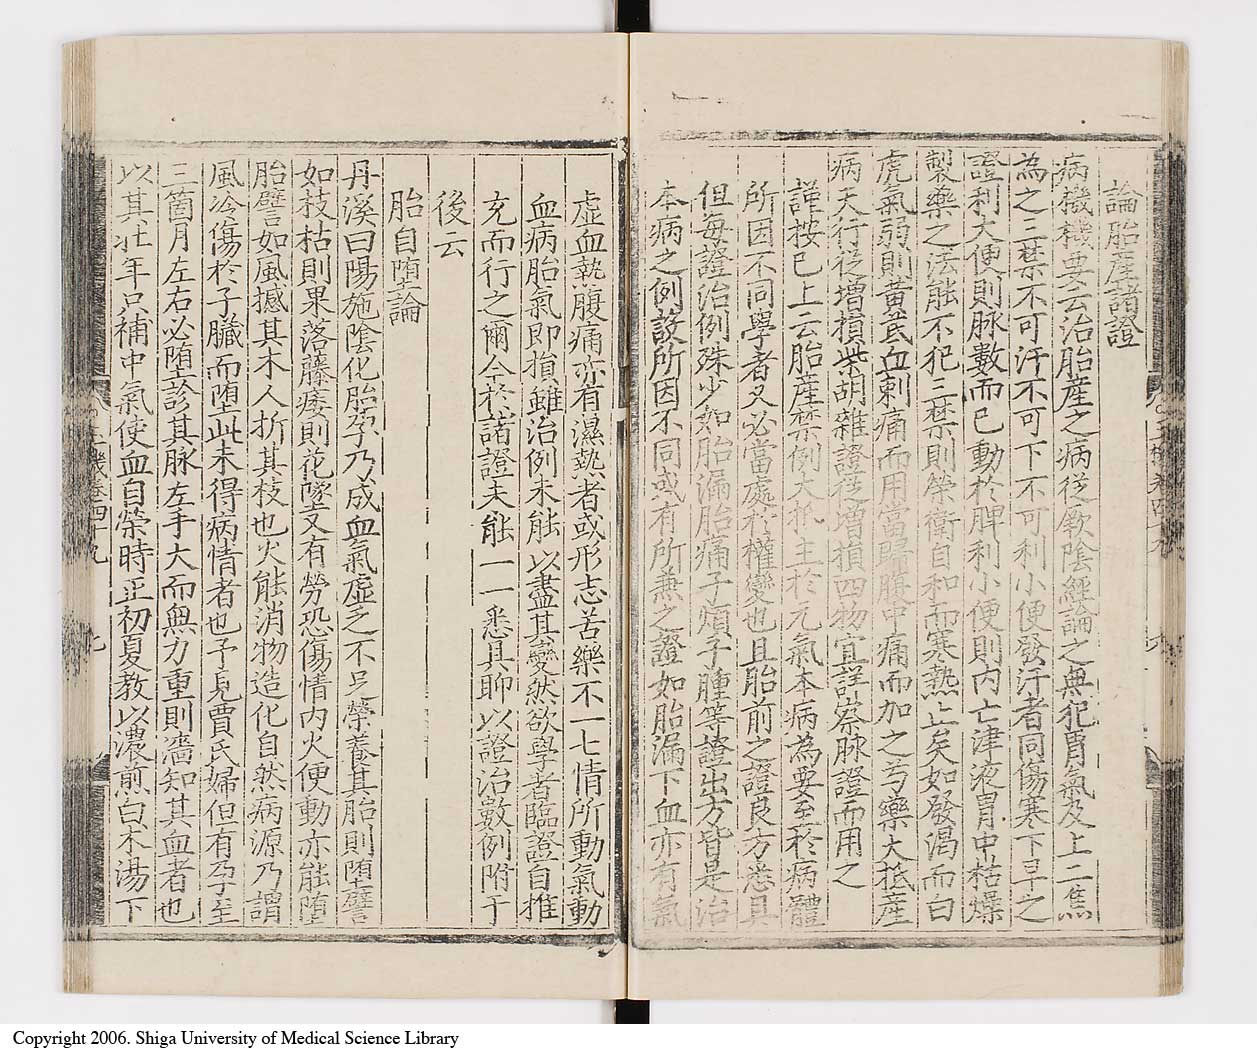 論胎産諸證
病機機要云治胎産之病從厥陰經論之無犯胃氣及上二焦
為之三禁不可汗不可下不可利小便發汗者同傷寒下早之
證利大便則脉數而已動於脾利小便則内亡津液胃中枯燥
製藥之法能不犯三禁則榮衛自和而寒熱止矣如發渴而白
虎氣弱則黄茋血刺痛而用當歸腹中痛而加之芍藥大抵産
病天行從增損柴胡雜證從增損四物宜詳察脉證而用之
謹按已上云胎産禁例大抵主於元氣本病為要至於病體
所因不同學者又必當處於權變也且胎前之證良方悉具
但每證治例殊少如胎漏胎痛子煩子腫等證出方皆是治
本病之例設所因不同或有所兼之證如胎漏下血亦有氣
虛血熱腹痛亦有濕熱者或形志苦樂不一七情所動氣動
血病胎氣即損雖治例未能以盡其變然欲學者臨證自推
充而行之爾今於諸證夫能一一悉具聊以證治數例附于
後云
胎自堕論
丹溪曰陽施隂化胎孕乃成血氣虛乏不足榮養其胎則堕譬
如枝枯則果落藤痿則花墜又有勞恐傷情内火便動亦能堕
胎譬如風撼其木人折其枝也火能消物造化自然病源乃謂
風冷傷於子臟而堕此未得病情者也予見賈氏婦但有孕至
三箇月左右必堕診其脉左手大而無力重則濇知其血者也
以其壯年只補中氣使血自榮時正初夏教以濃煎白朮湯下
卷四十九
九
Copyright 2006. Shiga University of Medical Science Library